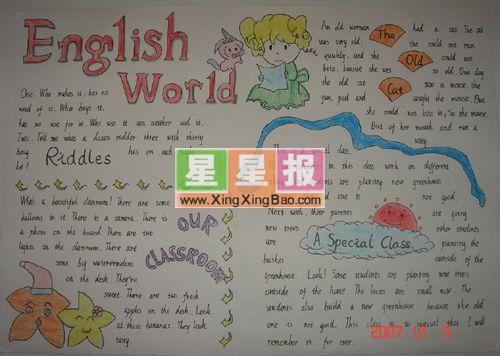 English
World
One. Who makes it, has no
need of it. Who buys it,
has no use for it. Who use it can neither
Two. Tell me what a dozen rubber trees with thirty
has on each
be?
Riddles
What a beautiful classroom! There are some
balloons in it. There is a camera. There is
a photo on the board. There are two
lights on the classroom. There are
some big watermelons
on the desk. They're
sweet. There are two fresh
apples on the desk. Look
at those bananas. They look
tasty.
OUR
CLASSROOM
An old woman
had a cat. The cat
was very old,
she could not run
quickly, and she
could not
bite, because she was
so old. One day
the old cat
saw a mouse. She
jump and
caught the mouse. But
she could not bite it. So the mouse
out of her mouth and ran a
The
Old
Cat
class.
in this class work on different
are planting new greenhouse
one is not good.
Next week, their parents are going
new trees other students
are planting the
bushes outside of the
greenhouse. Look! Some students are planting new trees
outside of the house. The buses are small now. The
students also build a new greenhouse because the old
one is not good. This class is so special that I will
remember it for ever.
A Special Class
星星报
www.XingXingBao.com
2007 12